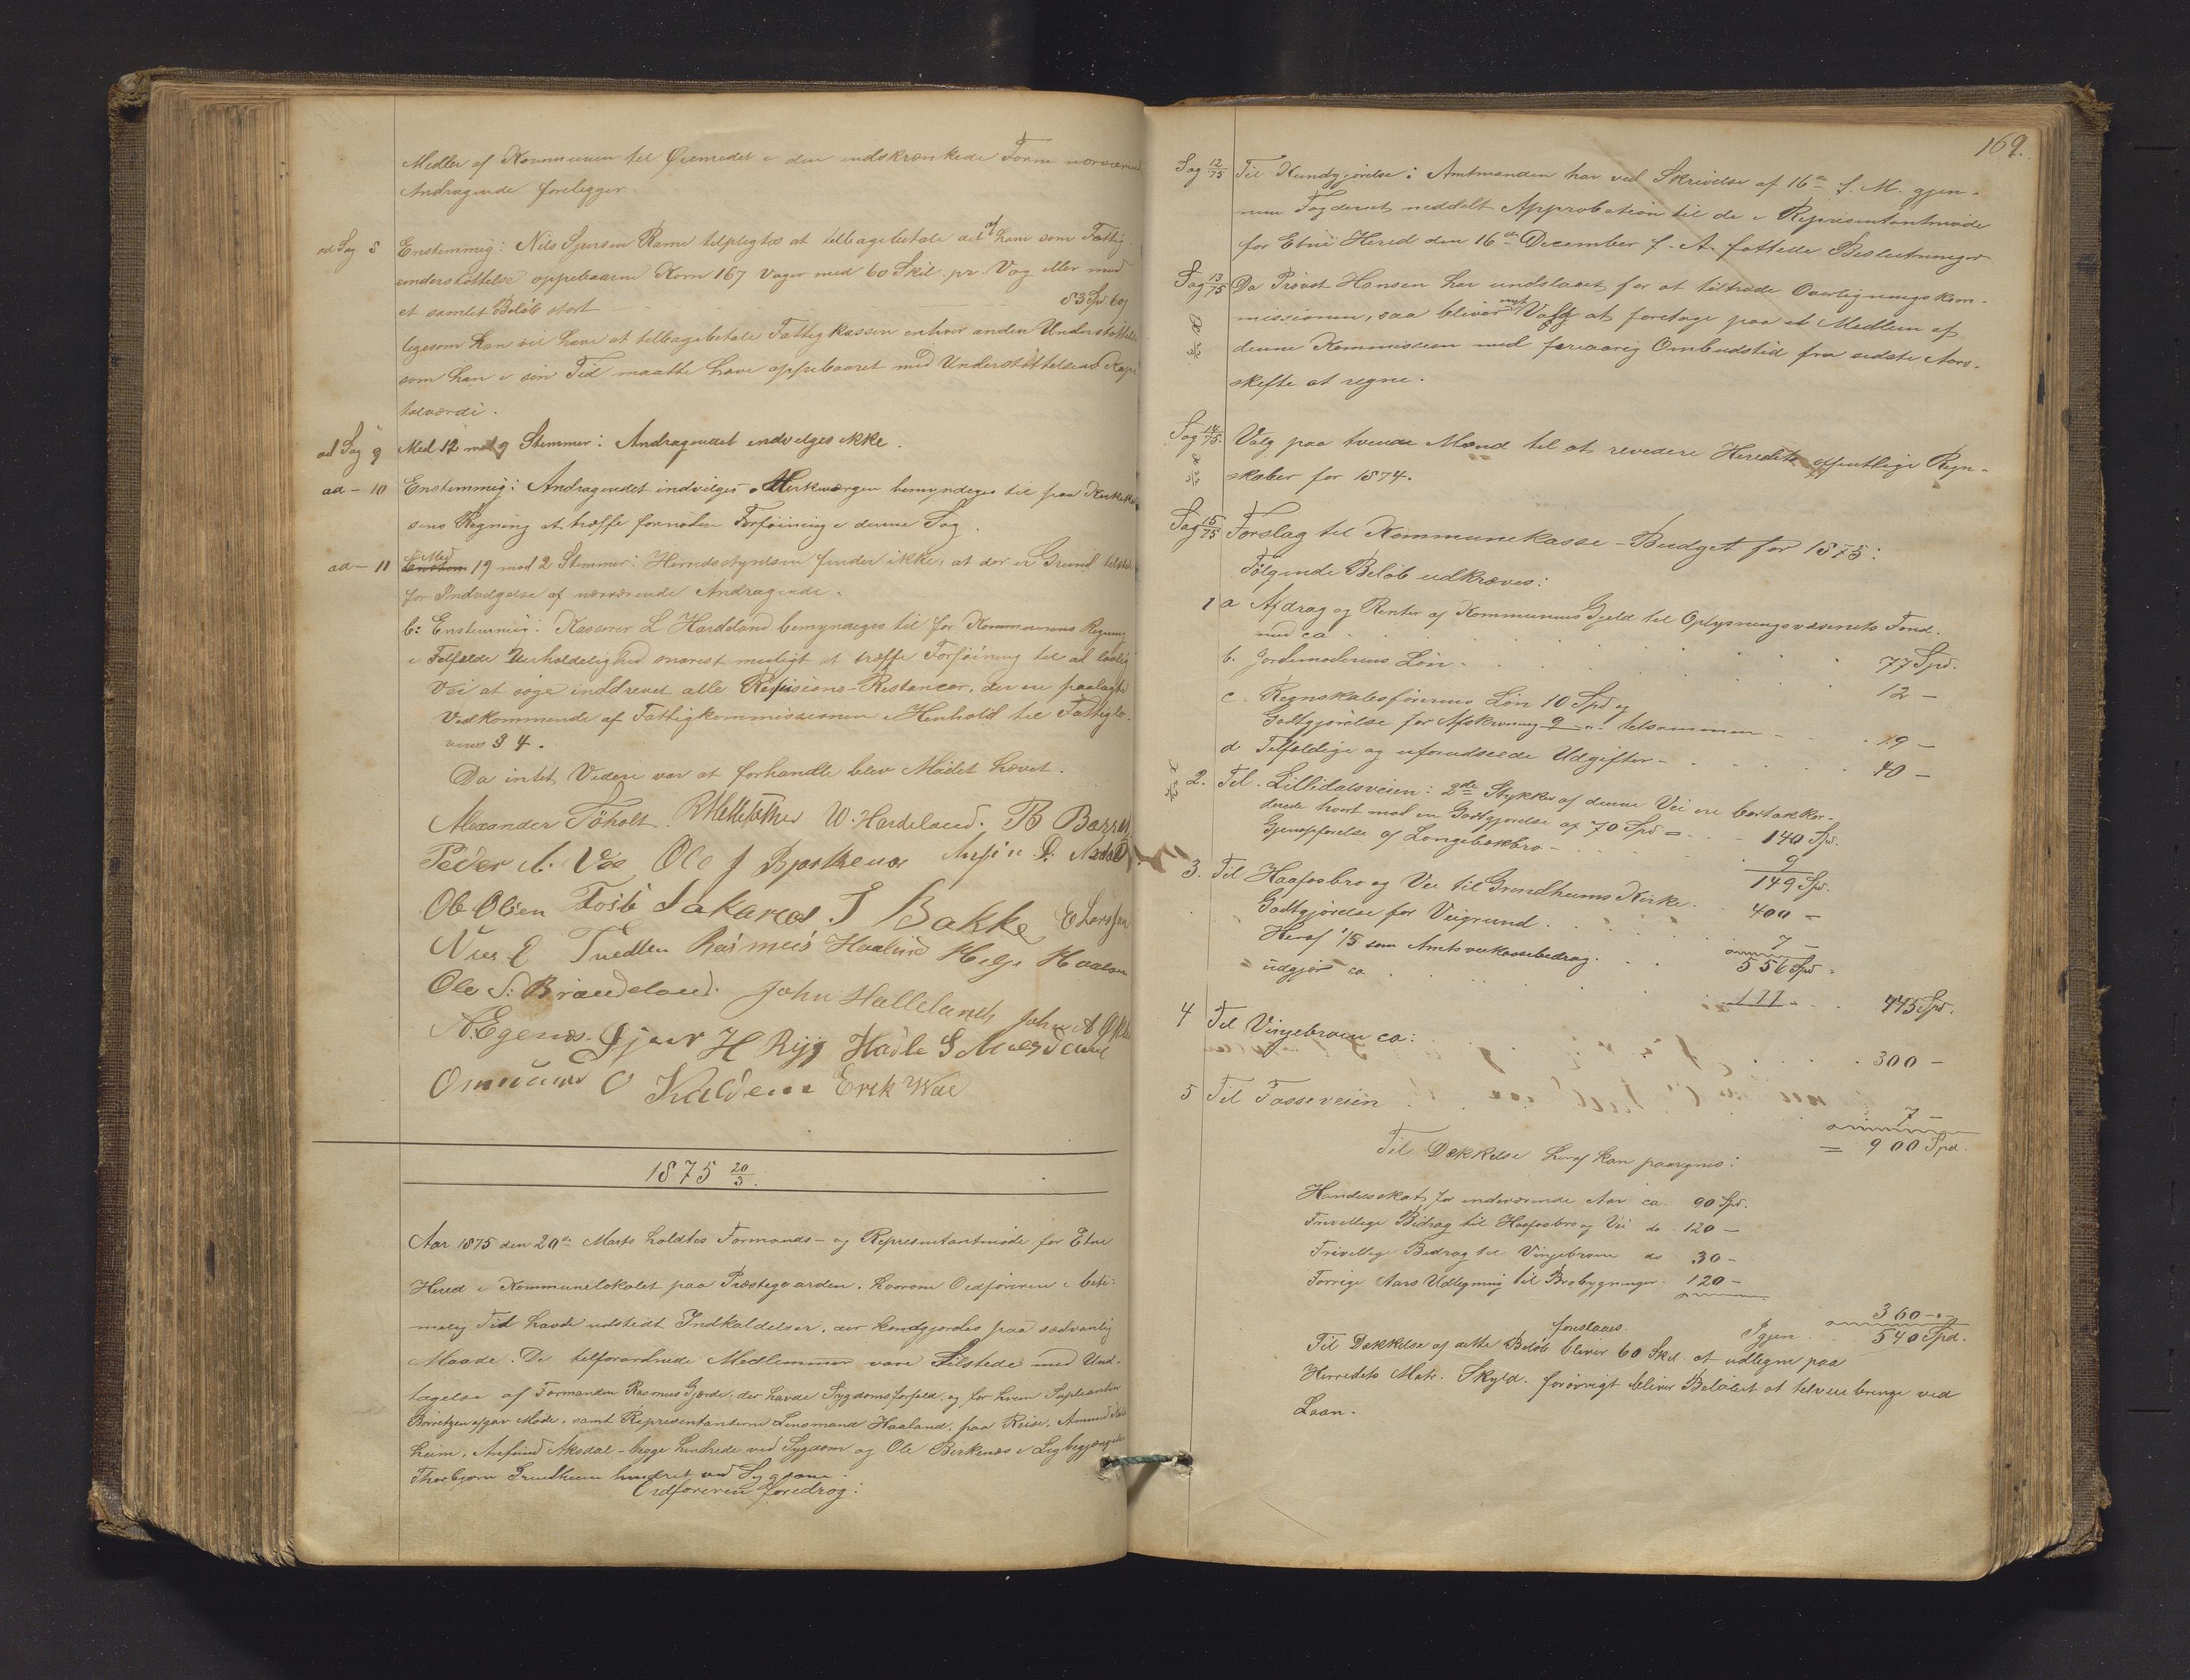 Midler af Kommunen til Øiemedet i den indskrænkede Form nærværende
Andragende forelegger.
ad Sag 8 Enstemmig: Nils Sjursen Rame tilpligtes at tilbagebetale det af ham som Fattig
understøttelse oppebaarne Korn 167 Voger med 60 Skil. pr. Vog eller med
et samlet Beløb stort 83 Spd. 60 s
ligesom han vil have at tilbagebetale Fattigkassen enhver anden Understøttelse
som han i sin Tid maatte have oppebaaret med Understøttelsens Kapi
talværdi.
ad Sag 9 Med 12 mod 9 Stemmer: Andragendet indvilges ikke.
ad - 10 Enstemmig: Andragendet indvilges. Kirkeværgen bemyndiges til paa Kirkekas
sens Regning at træffe fornøden Forføining i denne Sag.
ad - 11 Med 19 mod 2 Stemmer: Herredsstyrelsen finder ikke, at der er Grund tilstede
for Indvilgelse af nærværende Andragende.
b: Enstemmig: Kasserer L Hardeland bemyndiges til for Kommunens Regning
i Tilfælde Uerholdelighed snarest muligt at træffe Forføining til ad lovlig
Vei at søge inddrevet alle Revisions-Restancer, der ere paalagte
Vedkommende af Fattigkommissionen i Henhold til Fattiglo-
vens § 4.
Da intet Videre var at forhandle blev Mødet hævet.
Alexander Tøholt. W. Hardeland. B Børre
Peder A. Vae Ole J Bjørkenæs D.
Ole Olsen Tosk Sakarias J Bakke E Larssen
Nils E Tvedten Rasmus Haaland Helge Haaland
Ole S. Brandeland. John Halleland John A
A. Egenæs. Sjur H Ryg Hadle S
Omund O Kaldem Erik Wae
1875 20/3.
Aar 1875 den 20de Marts holdtes Formands- og Repræsentantmøde for Etne
Hered i Kommunelokalet paa Præstegaarden, hvorom Ordføreren i beti-
melig Tid havde udstedt Indkaldelser, der kundgjordes paa sædvanlig
Maade. De tilforordnede Medlemmer vare tilstede med Und-
tagelse af Formanden Rasmus Gjærde, der havde Sygdomsforfald, og for hvem Supleanten
Børretzen afgav Møde, samt Repræsentanterne Lensmand Haaland, paa Reise, Amund
heim, Anfind Aksdal - begge hindrede ved Sygdom og Ole Birkenæs i Ligbegjængelse
Thorbjørn Grindheim hindret ved Sygdom.
Ordføreren foredrog:
169.
Sag 12/75 Til Kundgjørelse: Amtmanden har ved Skrivelse af 16de f. M. gjen-
nem Fogderiet meddelt Approbation til de i Repræsentantmøde
for Etne Hered den 16de December f. A. fattede Beslutninger
Sag 13/75 Da Provst Hansen har undslaaet for at tiltræde Overligningskom-
missionen, saa bliver nyt Valg at foretage paa et Medlem af
denne Kommission med fireaarig Ombudstid fra sidste Aars-
skifte at regne.
Sag 14/75. Valg paa tvende Mænd til at revidere Heredets offentlige Regn-
skaber for 1874.
Sag 15/75 Forslag til Kommunekasse-Budget for 1875:
Følgende Beløb udkræves:
1 a Afdrag og Renter af Kommunens Gjeld til Oplysningsvæsenets Fond.
med ca 77 Spd.
b. Jordemoderens Løn 12 -
c. Regnskabsførerens Løn 10 Spd og
Godtgjørelse for Afskrivning 9 - " tilsammen 19 -
d Tilfældige og uforudseede Udgifter 40 -
2. Til Lillidalsveien: 2de Stykker af denne Vei ere bortakkor-
derede hvert mod en Godtgjørelse af 70 Spd = 140 Spd.
Gjenopførelse af Longebakbro 9
149 Spd.
3. Til Haafosbro og Vei til Grindheims Kirke 400 -
Godtgjørelse for Veigrund 7 -
556 Spd.
Heraf 1/5 som Amtsveikassebidrag.
udgjør ca 111 - 445 Spd.
4 Til Vingebroen ca: 300 -
5 Til Fosseveien 7 -
= 900 Spd.
Til Dækkelse heraf kan paaregnes:
Handelsskat for indeværende Aar ca 90 Spd.
Frivillige Bidrag til Haafosbro og Vei do 120 -
Frivillige Bidrag til Vingebroen do 30 -
Forrige Aars Udligning til Brobygninger 120 -
360 -
Igjen 540 Spd.
Til Dækkelse af dette Beløb foreslaaes bliver 60 Skil. at udligne paa
Herredets Matr. Skyld. forøvrigt bliver Beløbet at tilveiebringe ved
Laan.